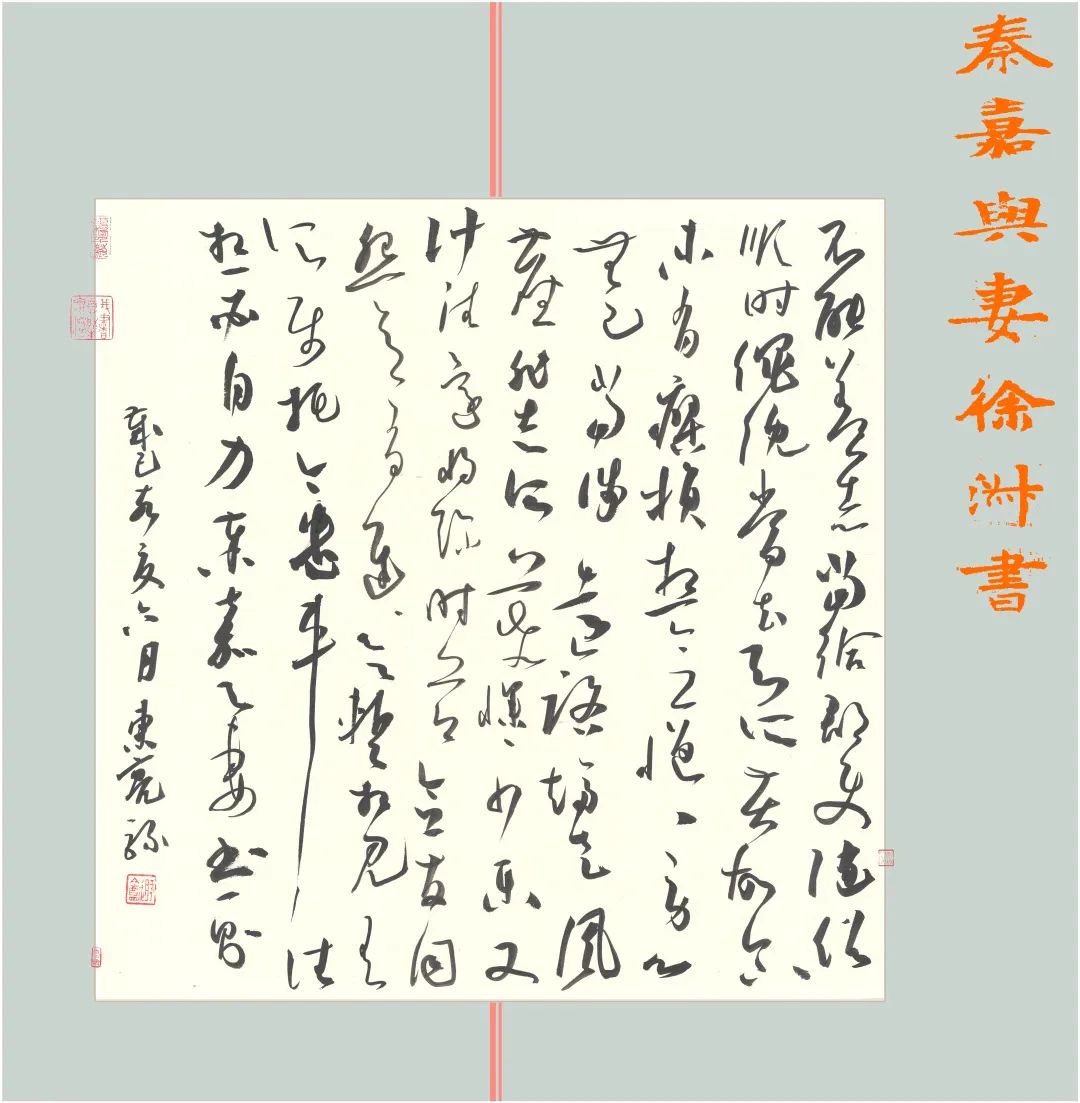 秦嘉與妻徐淑書
不能養志當給郡使隨俗
順时僶俛當去知所苦故尔
未有瘳損想念悒々勞心
無已當涉遠路趨走風
塵非志所慕慘々少樂又
計往還將弥时節念發同
怨意有遲々欲暫相見有
所属托今遣車往
想必自力秦嘉與妻書一則
亥六月東亮録